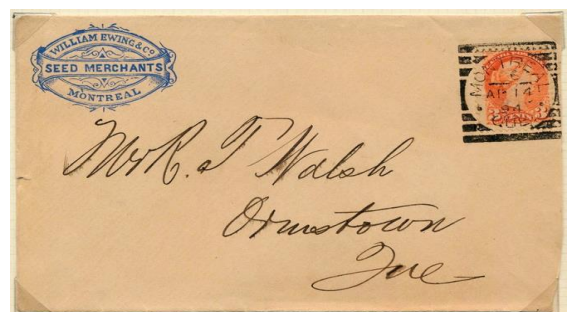 WILLIAM EWING & CO.
SEED MERCHANTS
MONTREAL
MONTREAL
AP 14
94
Mr R. T Walsh
Ormstown
Que